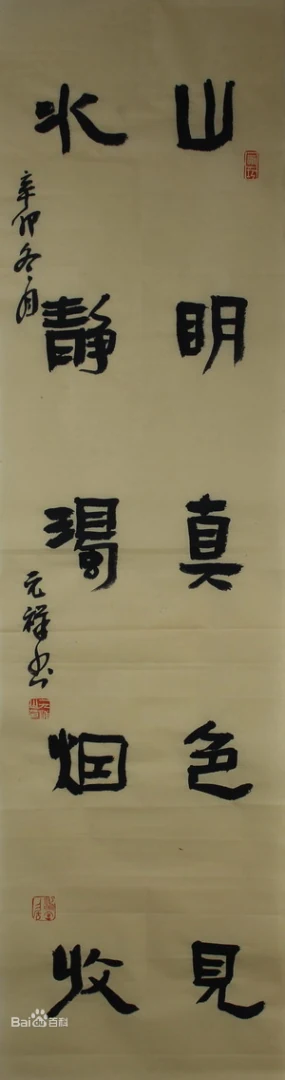 山明真色見
水靜濁烟收
辛卯冬月
元祥书
Bai百科